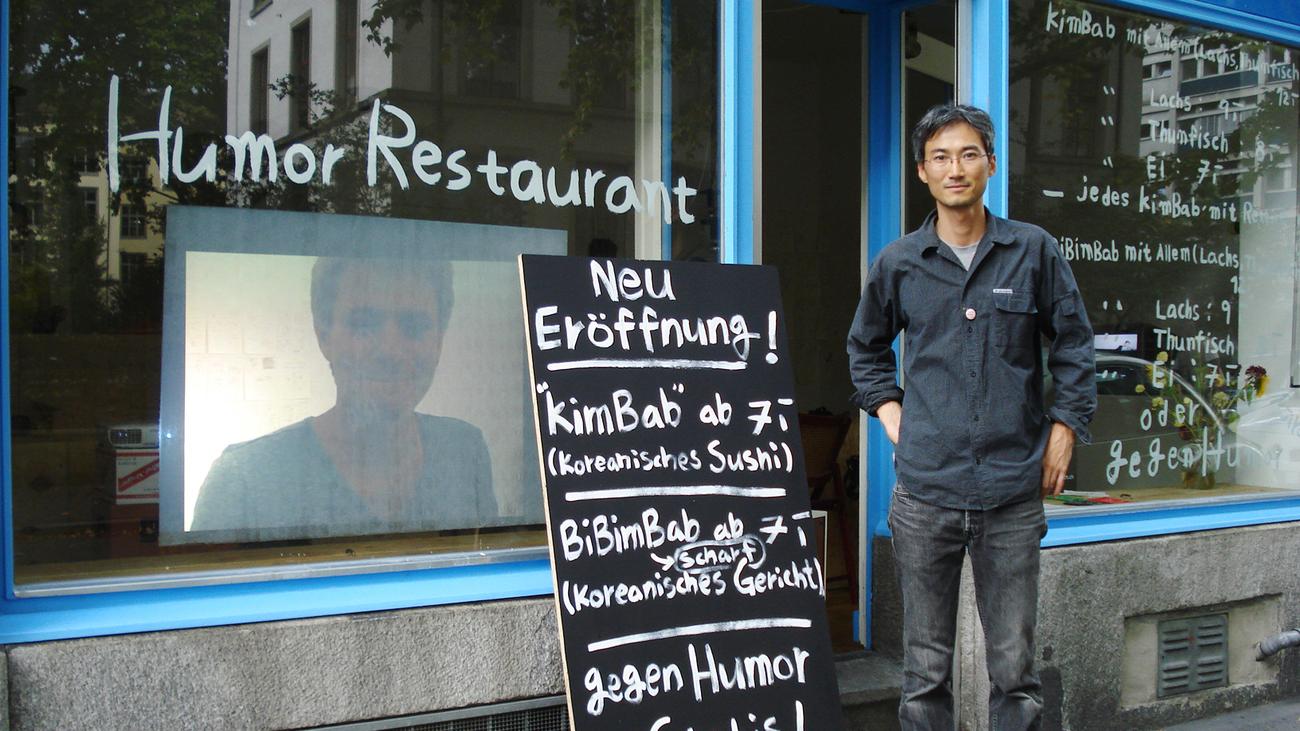 Humor Restaurant
Neu
Eröffnung!
"KimBab" ab 7.-
(Koreanisches Sushi)
BiBimBab ab 7.-
→ scharf
(Koreanisches Gericht)
gegen Humor
Gratis!
KimBab mit Allem (Lachs, Thunfisch
12.-
" Lachs : 9.-
" Thunfisch 8.-
" Ei : 7.-
- jedes KimBab mit
BiBimBab mit Allem (Lachs
" Lachs : 9
Thunfisch
" Ei : 7.-
oder
gegen Humor